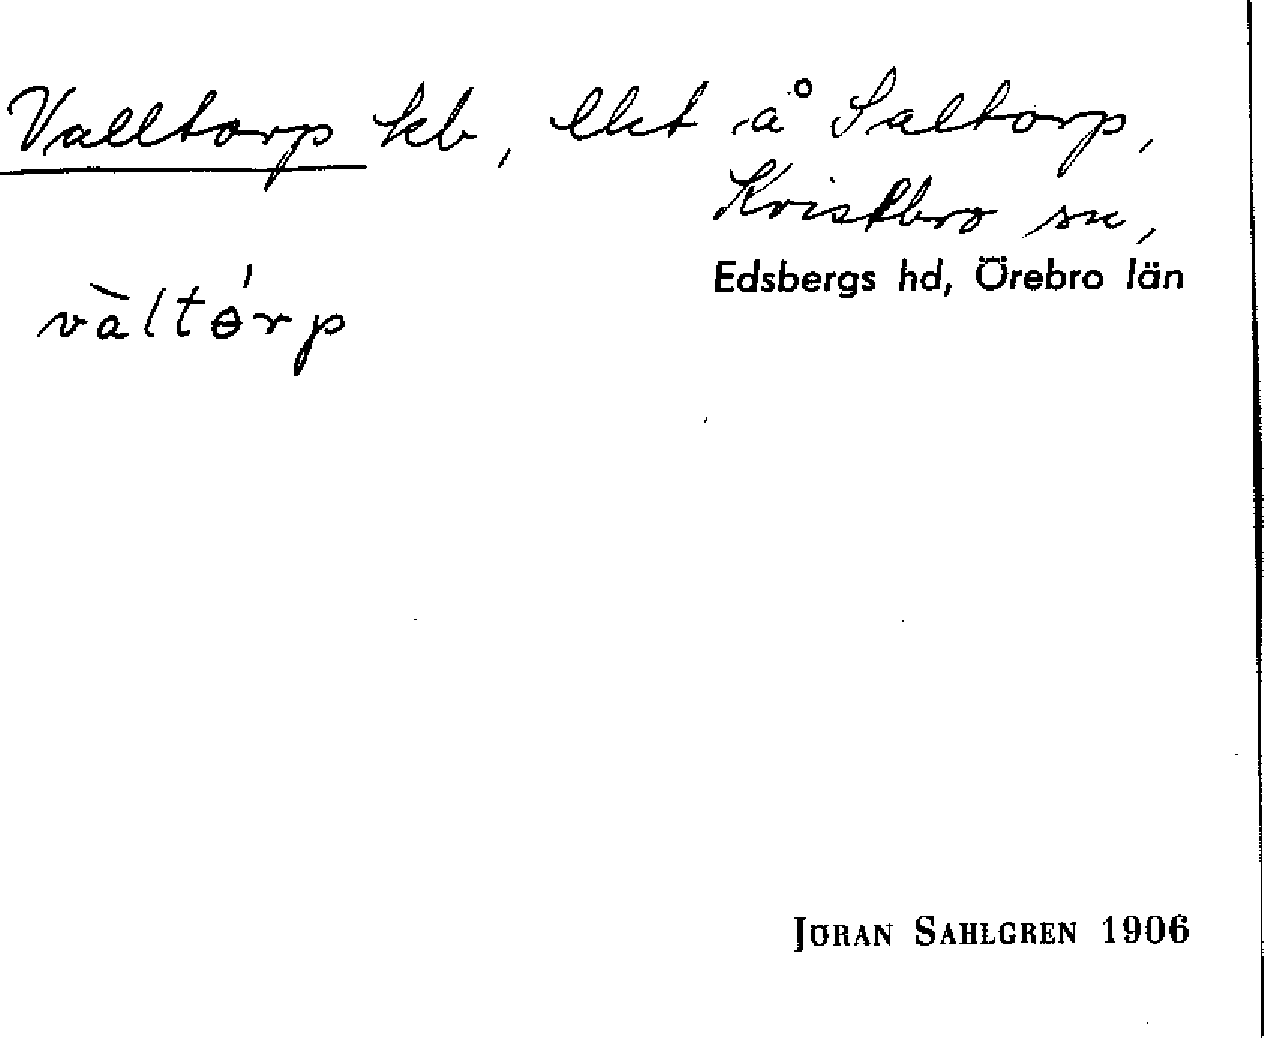 Valltorp kb, lht å Saltorp,
Kvistbro sn,
Edsbergs hd, Örebro län
vàltɵ́rp
JÖRAN SAHLGREN 1906